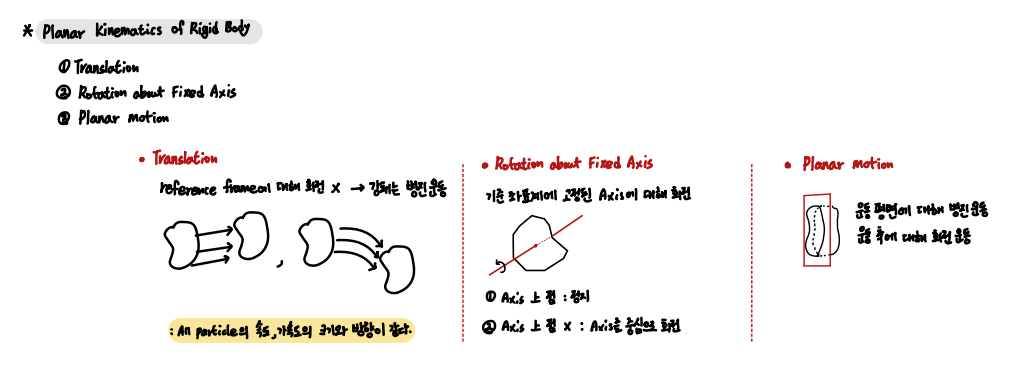 * Planar Kinematics of Rigid Body
① Translation
② Rotation about Fixed Axis
③ Planar motion
• Translation
reference frame에 대해 회전 X → 강체는 병진운동
,
: An particle의 속도, 가속도의 크기와 방향이 같다.
• Rotation about Fixed Axis
기준 좌표계에 고정된 Axis에 대해 회전
① Axis 上 점 : 정지
② Axis 上 점 X : Axis를 중심으로 회전
• Planar motion
운동 평면에 대해 병진운동
운동 축에 대해 회전운동